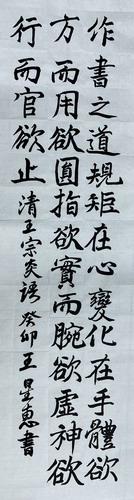 作書之道規矩在心變化在手體欲
方而用欲圓指欲實而腕欲虛神欲
行而官欲止清王宗炎語癸卯王星惠書